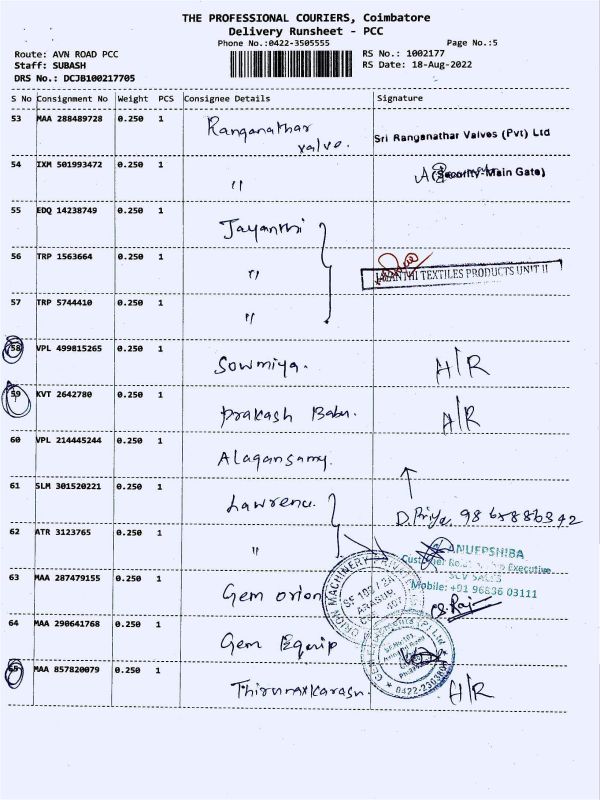 THE PROFESSIONAL COURIERS, Coimbatore
Delivery Runsheet - PCC
Phone No.:0422-3505555
Page No.:5
Route: AVN ROAD PCC
RS No.: 1002177
Staff: SUBASH
RS Date: 18-Aug-2022
DRS No.: DCJB100217705
S No Consignment No Weight PCS Consignee Details Signature
53 MAA 288489728 0.250 1 Ranganathar
valve.
Sri Ranganathar Valves (Pvt) Ltd
54 IXM 501993472 0.250 1 "
(Security-Main Gate)
55 EDQ 14238749 0.250 1 Jayanthi
56 TRP 1563664 0.250 1 "
JAYANTHI TEXTILES PRODUCTS UNIT II
57 TRP 5744410 0.250 1 "
58 VPL 499815265 0.250 1 Sowmiya. H/R
59 KVT 2642780 0.250 1 Prakash Babu. H/R
60 VPL 214445244 0.250 1 Alagansamy.
61 SLM 301520221 0.250 1 Lawrence.
D. Priya
62 ATR 3123765 0.250 1 "
ANUEPSHIBA
Executive
Mobile: +91 96836 03111
63 MAA 287479155 0.250 1 Gem orion
64 MAA 290641768 0.250 1 Gem Equip
65 MAA 857820079 0.250 1 Thirunavkarasu. H/R